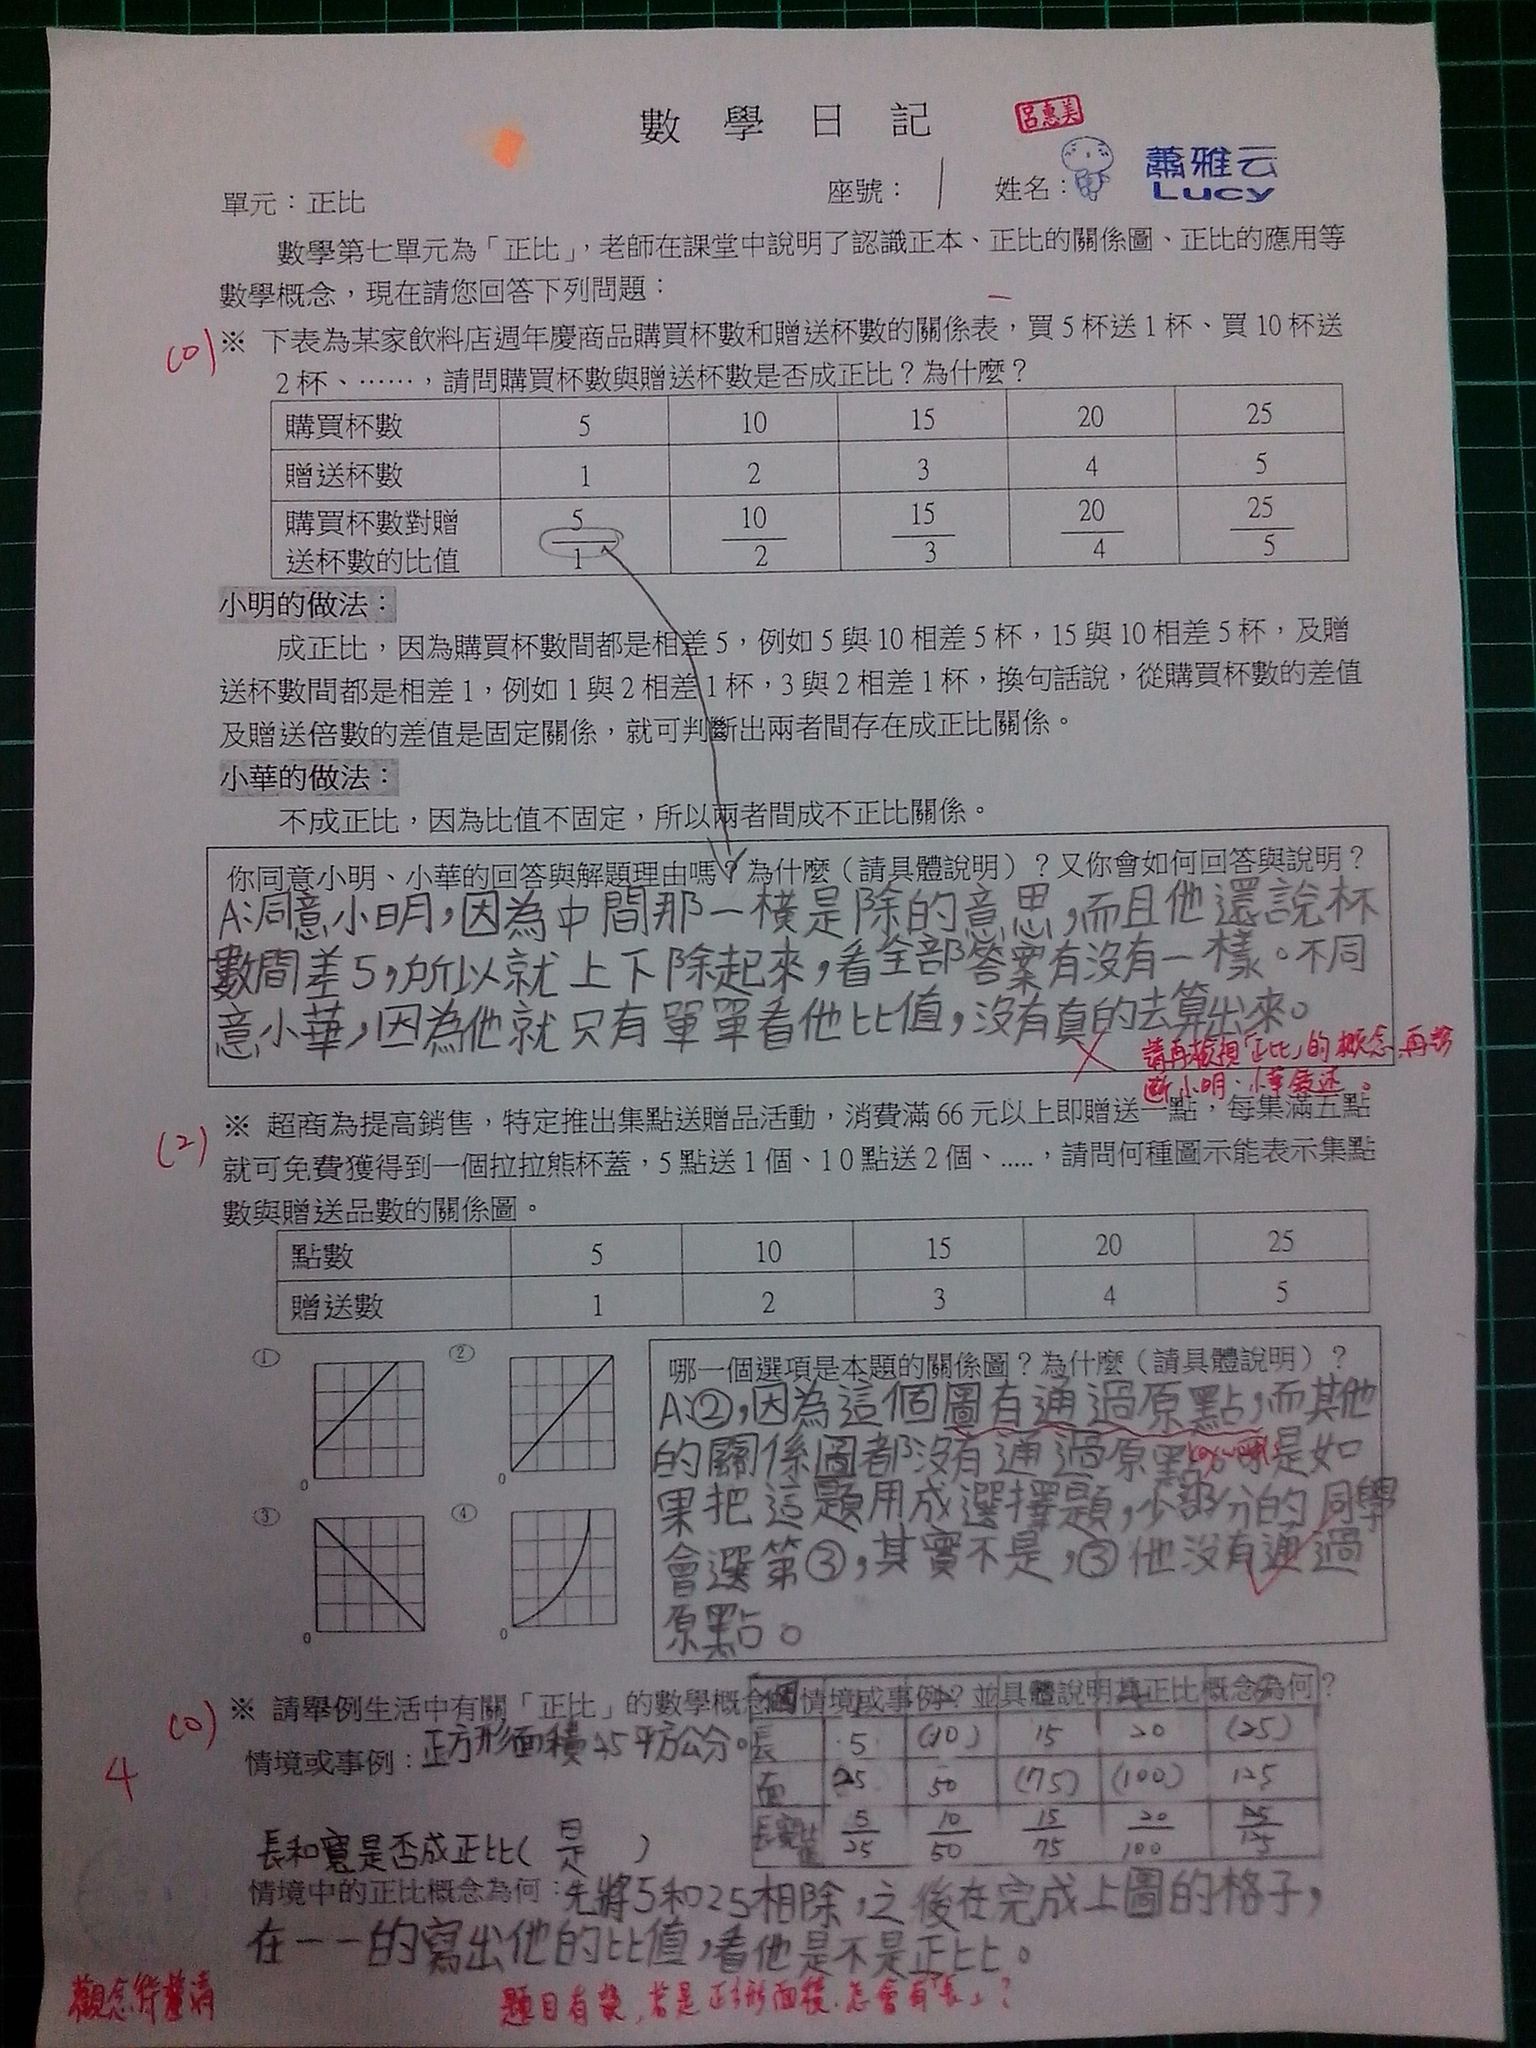 數學日記
呂惠美
單元：正比
座號： 1 姓名：
蕭雅云
Lucy
數學第七單元為「正比」，老師在課堂中說明了認識正本、正比的關係圖、正比的應用等
數學概念，現在請您回答下列問題：
(0)
※ 下表為某家飲料店週年慶商品購買杯數和贈送杯數的關係表，買 5 杯送 1 杯、買 10 杯送
2 杯、……，請問購買杯數與贈送杯數是否成正比？為什麼？
購買杯數 5 10 15 20 25
贈送杯數 1 2 3 4 5
購買杯數對贈 5 10 15 20 25
送杯數的比值 1 2 3 4 5
小明的做法：
成正比，因為購買杯數間都是相差 5，例如 5 與 10 相差 5 杯，15 與 10 相差 5 杯，及贈
送杯數間都是相差 1，例如 1 與 2 相差 1 杯，3 與 2 相差 1 杯，換句話說，從購買杯數的差值
及贈送倍數的差值是固定關係，就可判斷出兩者間存在成正比關係。
小華的做法：
不成正比，因為比值不固定，所以兩者間成不正比關係。
你同意小明、小華的回答與解題理由嗎？為什麼（請具體說明）？又你會如何回答與說明？
A:同意小明,因為中間那一橫是除的意思,而且他還說杯
數間差5,所以就上下除起來,看全部答案有沒有一樣。不同
意小華,因為他就只有單單看他比值,沒有真的去算出來。
請再檢視「正比」的概念,再診
斷小明、小華敘述。
(2)
※ 超商為提高銷售，特定推出集點送贈品活動，消費滿 66 元以上即贈送一點，每集滿五點
就可免費獲得到一個拉拉熊杯蓋，5 點送 1 個、10 點送 2 個、.....，請問何種圖示能表示集點
數與贈送品數的關係圖。
點數 5 10 15 20 25
贈送數 1 2 3 4 5
① ②
0 0
③ ④
0 0
哪一個選項是本題的關係圖？為什麼（請具體說明）？
A:②,因為這個圖有通過原點,而其他
的關係圖都沒有通過原點 是如
果把這題用成選擇題,少部分的同學
會選第③,其實不是,③他沒有通過
原點。
(0)
※ 請舉例生活中有關「正比」的數學概念的情境或事例？並具體說明其正比概念為何？
情境或事例：正方形面積25平方公分。
長 5 (10) 15 20 (25)
面 25 50 (75) (100) 125
長寬比值 5 10 15 20 25
25 50 75 100 125
4
長和寬是否成正比( 是 )
情境中的正比概念為何：先將5和25相除,之後在完成上圖的格子,
在一一的寫出他的比值,看他是不是正比。
觀念待釐清
題目有誤,若是正方形面積,怎會有「長」?